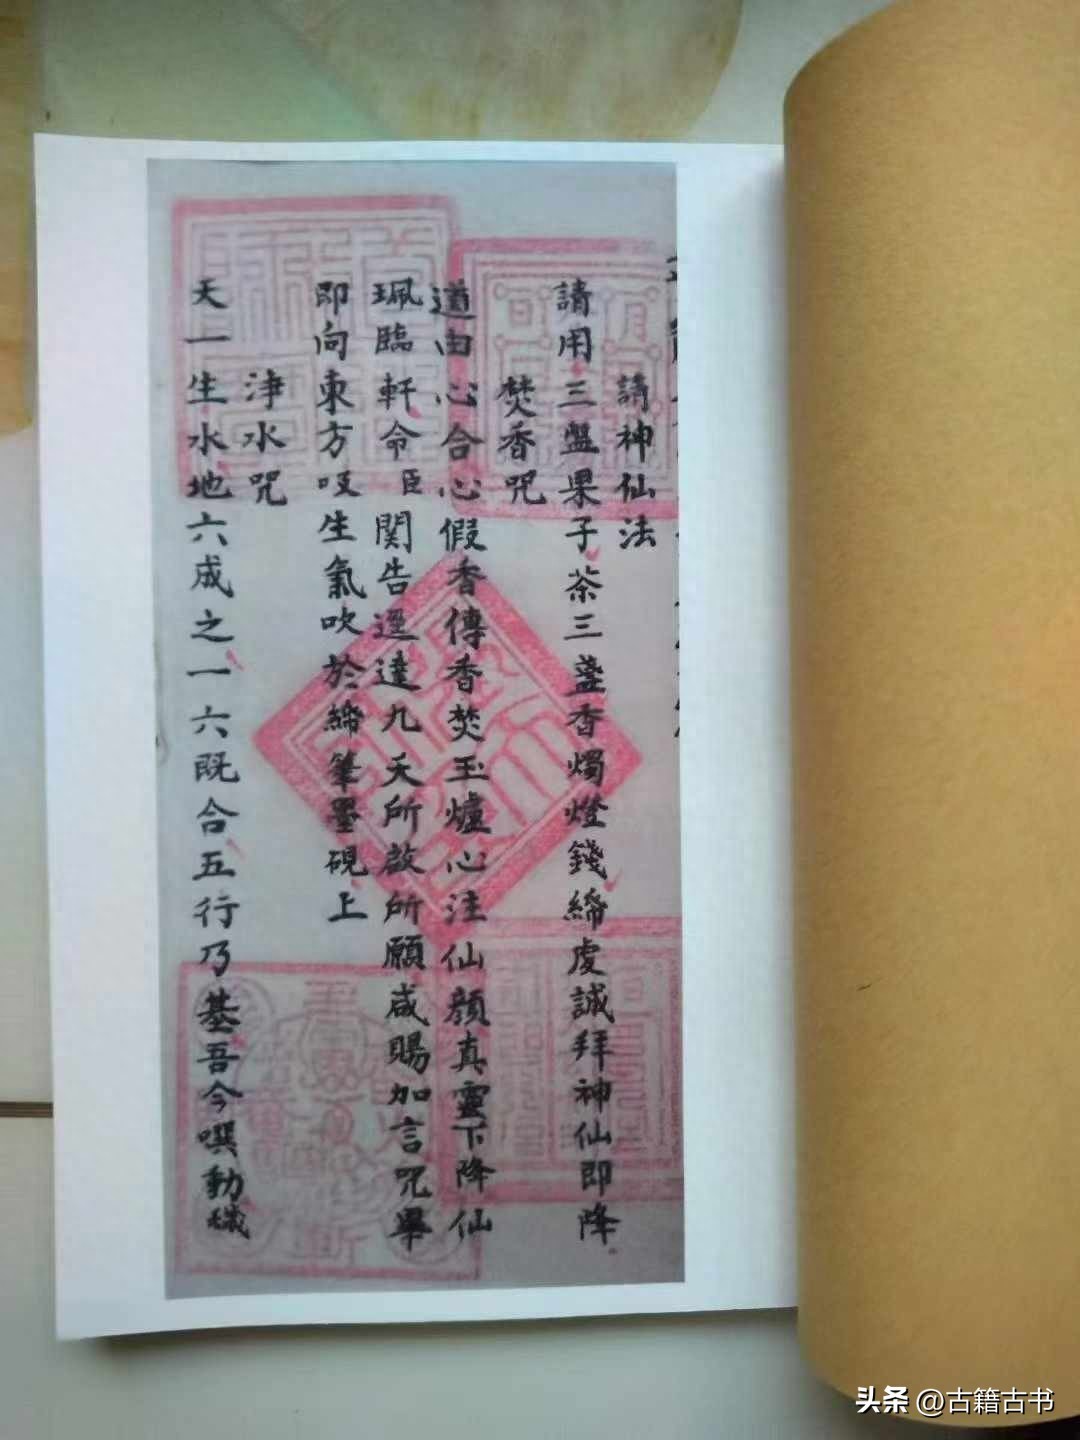 請神仙法
請用三盤果子茶三盞香燭燈錢締虔誠拜神仙即降
焚香咒
道由心合心假香傳香焚玉爐心注仙顏真靈下降仙
珮臨軒令臣関告逕達九天所啟所願咸賜加言咒畢
即向東方吸生氣吹於締筆墨硯上
淨水咒
天一生水地六成之一六既合五行乃基吾今噀動穢
头条 @古籍古书